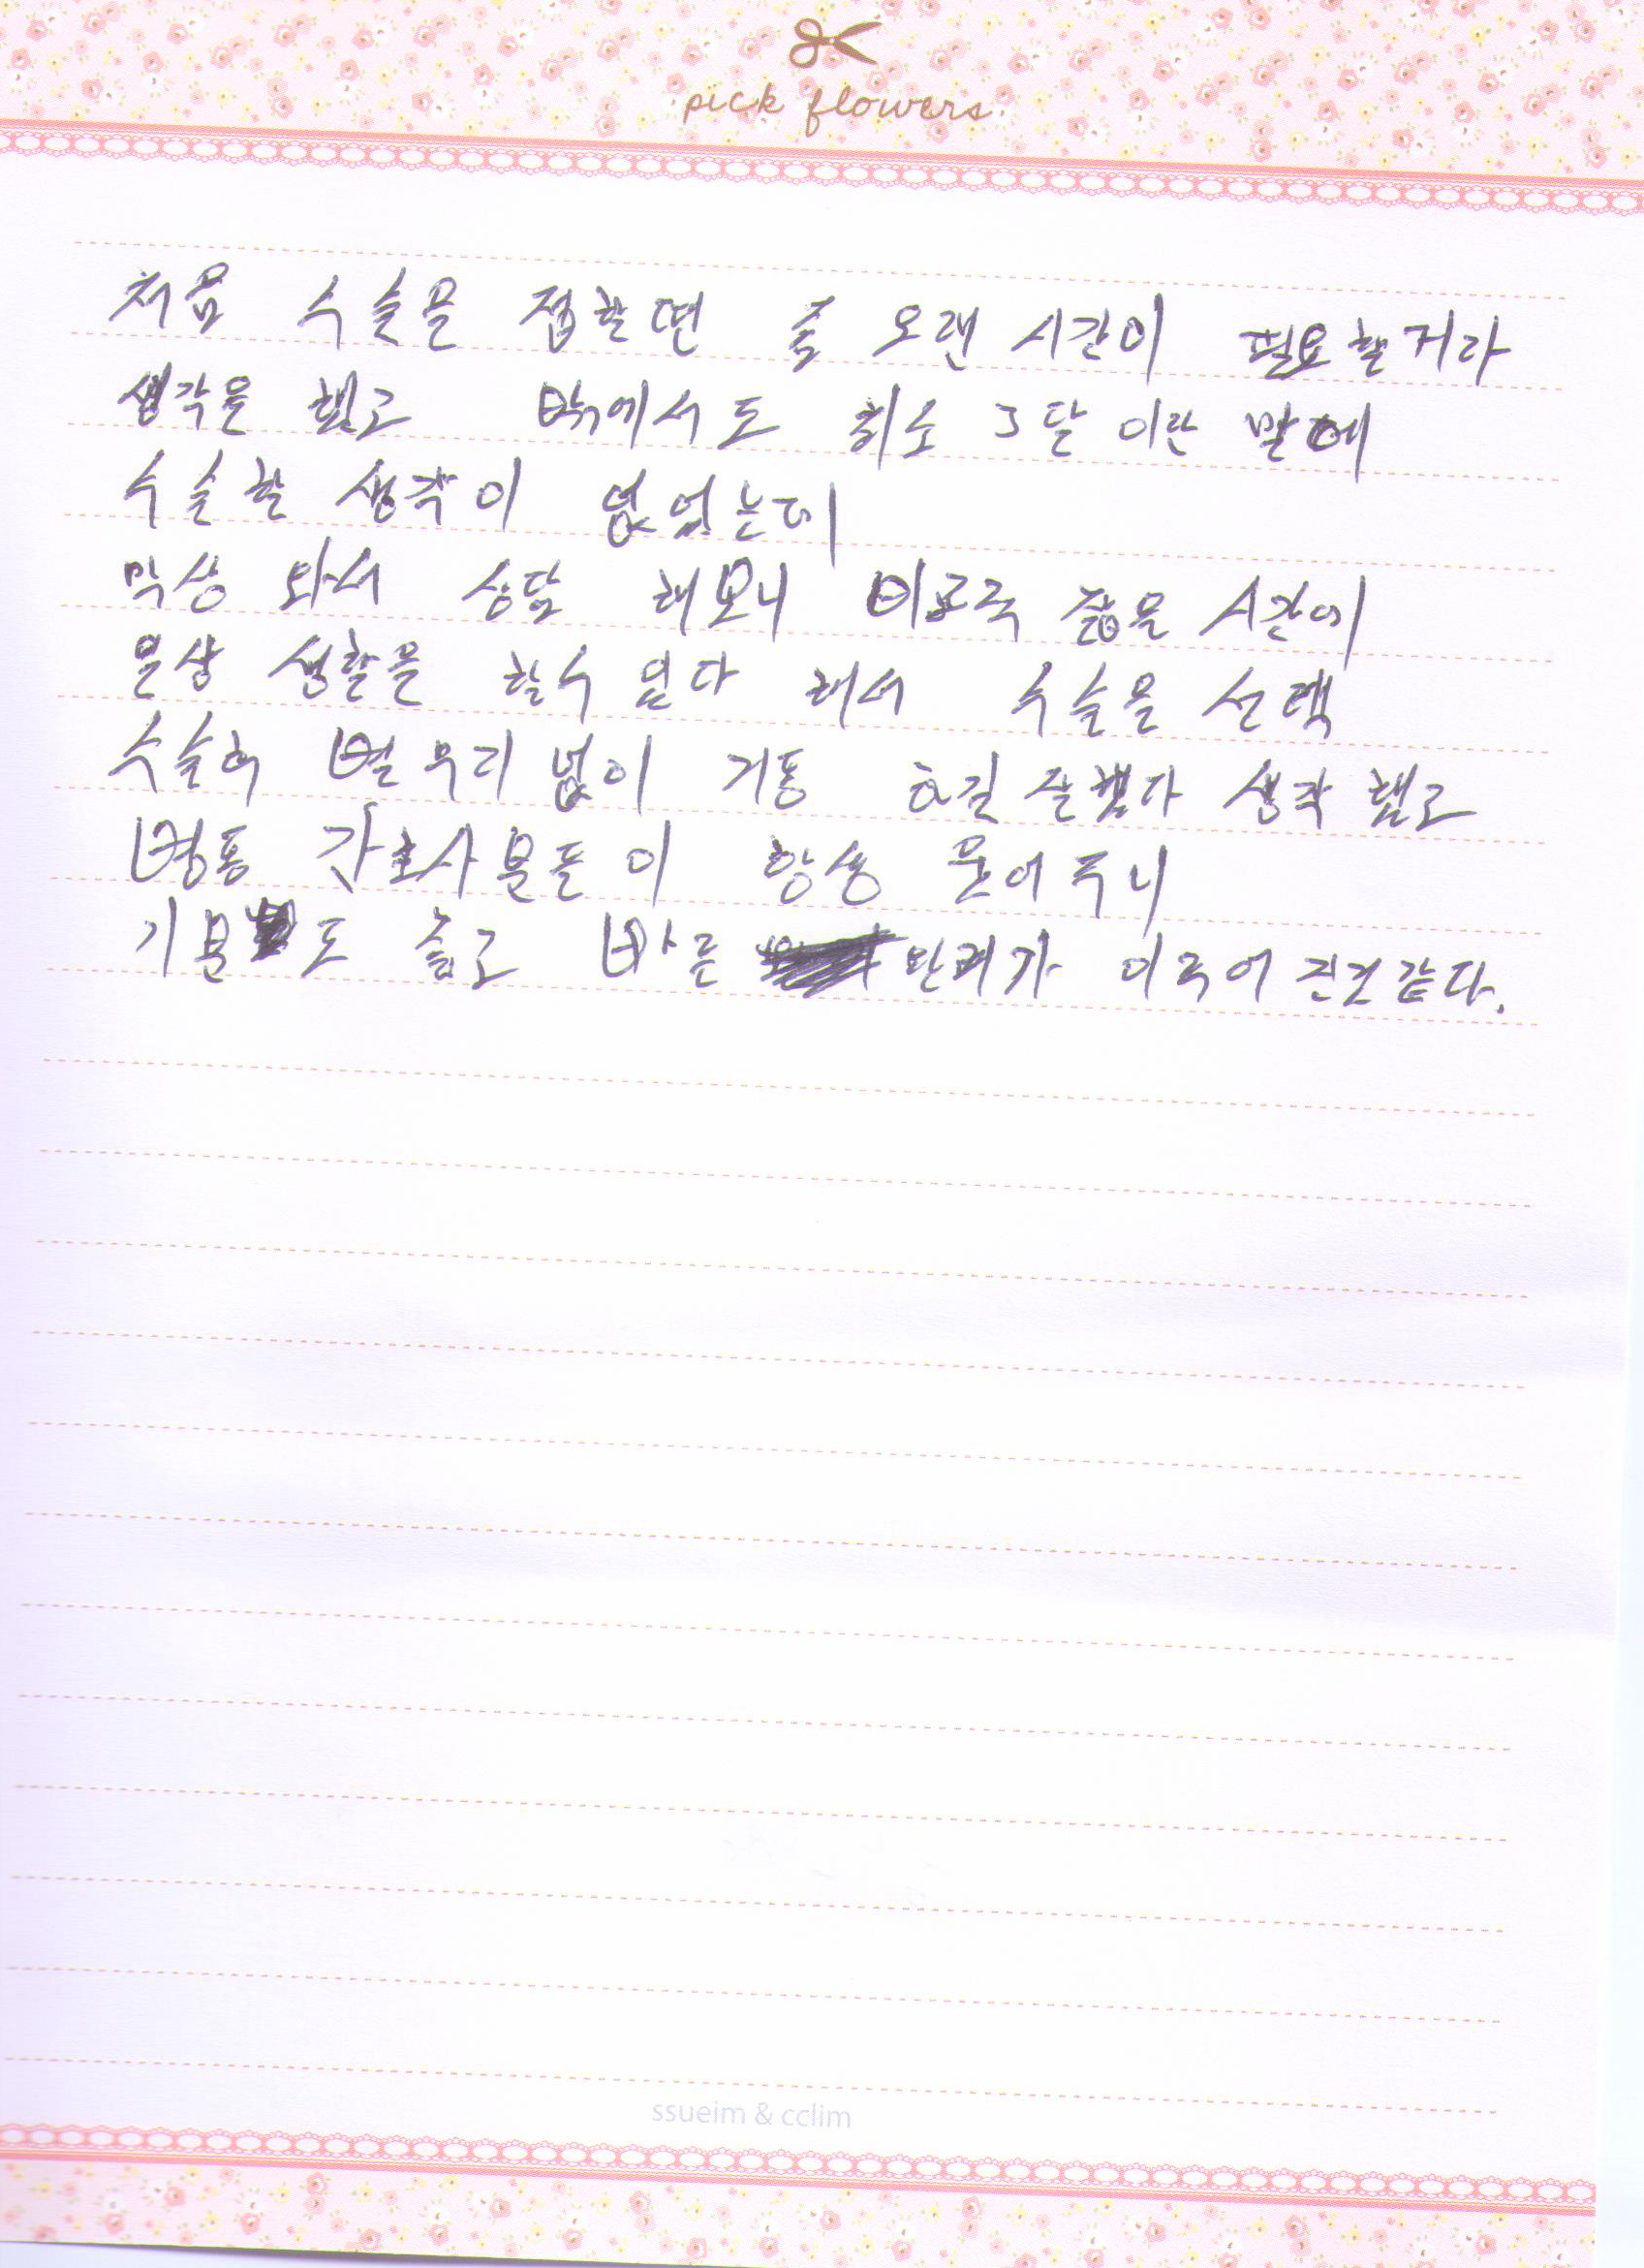 pick flowers
처음 수술을 접할땐 좀 오랜 시간이 필요할거라
생각을 했고 밖에서도 최소 3달 이란 말에
수술할 생각이 없었는데
막상 와서 상담 해보니 비교적 짧을 시간에
일상 생활을 할수 있다 해서 수술을 선택
수술후 별 무리 없이 거동 하길 잘했다 생각 했고
병동 간호사 분들이 항상 웃어주니
기분도 좋고 바른 관리가 이루어 진것 같다.
ssueim & cclim